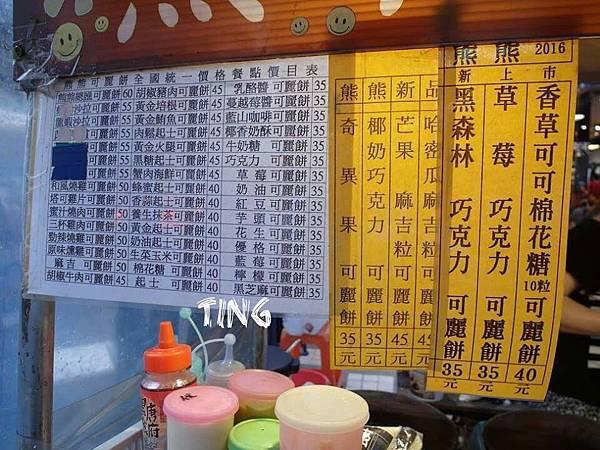 熊熊可麗餅全國統一價格餐點價目表
可麗餅 60 胡椒豬肉可麗餅 45 乳酪醬可麗餅 35
沙拉可麗餅 55 黃金培根可麗餅 45 蔓越莓醬可麗餅 35
龍蝦沙拉可麗餅 55 黃金鮪魚可麗餅 45 藍山咖啡可麗餅 35
可麗餅 55 肉鬆起士可麗餅 45 椰香奶酥可麗餅 35
可麗餅 55 黃金火腿可麗餅 45 牛奶糖可麗餅 35
可麗餅 55 黑糖起士可麗餅 45 巧克力可麗餅 35
可麗餅 50 蟹肉海鮮可麗餅 45 草莓可麗餅 35
和風燒雞可麗餅 50 蜂蜜起士可麗餅 40 奶油可麗餅 35
塔可雞片可麗餅 50 香蒜起士可麗餅 40 紅豆可麗餅 35
蜜汁燒肉可麗餅 50 養生抹茶可麗餅 40 芋頭可麗餅 35
三杯雞肉可麗餅 50 黃金起士可麗餅 40 花生可麗餅 35
勁辣燒雞可麗餅 50 奶油起士可麗餅 40 優格可麗餅 35
原味燻雞可麗餅 50 生菜玉米可麗餅 40 藍莓可麗餅 35
麻吉可麗餅 50 棉花糖可麗餅 40 檸檬可麗餅 35
胡椒牛肉可麗餅 45 起士可麗餅 40 黑芝麻可麗餅 35
熊熊新品
奇異果可麗餅 35元
椰奶巧克力可麗餅 35元
芒果麻吉粒可麗餅 45元
哈密瓜麻吉粒可麗餅 45元
熊熊 2016
新上市
黑森林巧克力可麗餅 35元
草莓巧克力可麗餅 35元
香草可可棉花糖10粒可麗餅 40元
TING
唐府